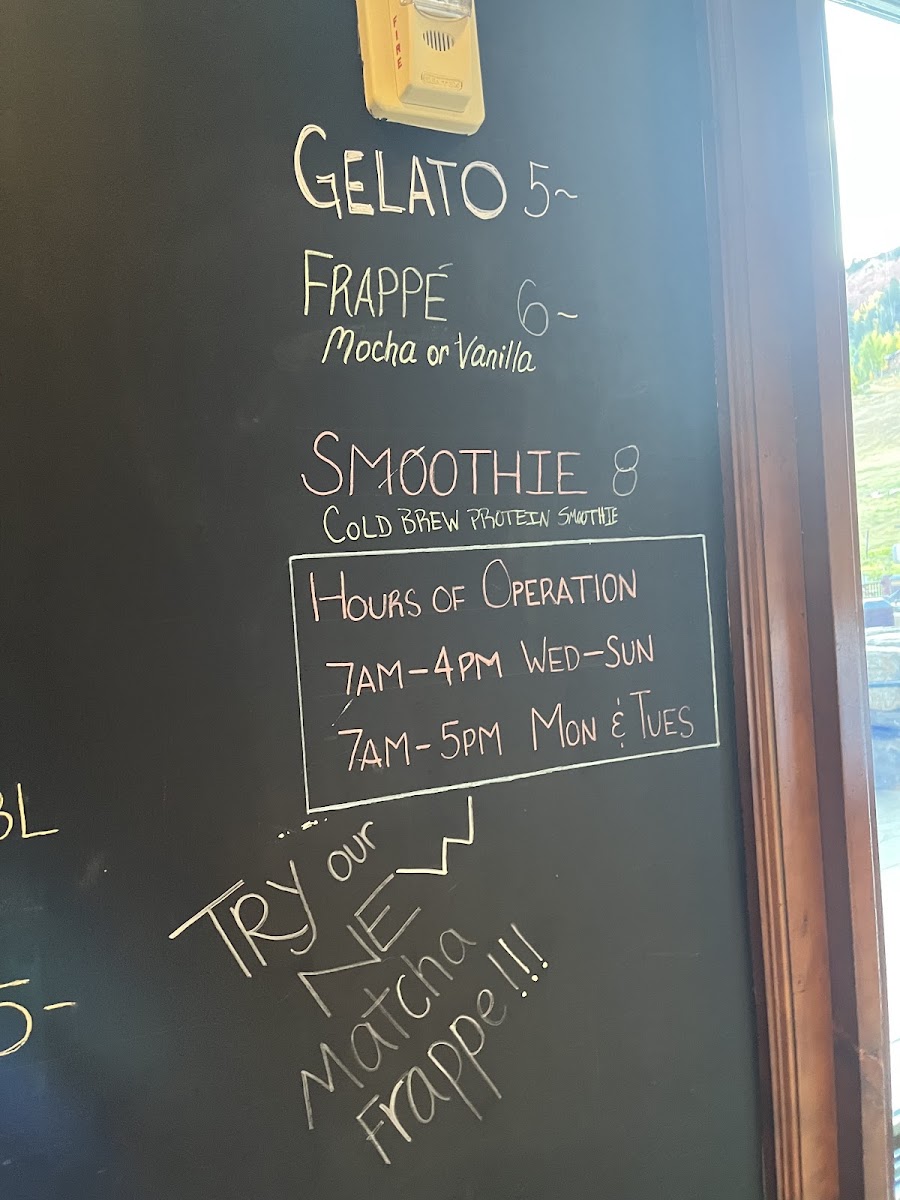 FIRE
GELATO 5~
FRAPPÉ 6~
Mocha or Vanilla
SMOOTHIE 8
COLD BREW PROTEIN SMOOTHIE
HOURS OF OPERATION
7AM-4PM WED-SUN
7AM-5PM MON & TUES
BL
5-
TRY our
NEW
Matcha
Frappe!!!